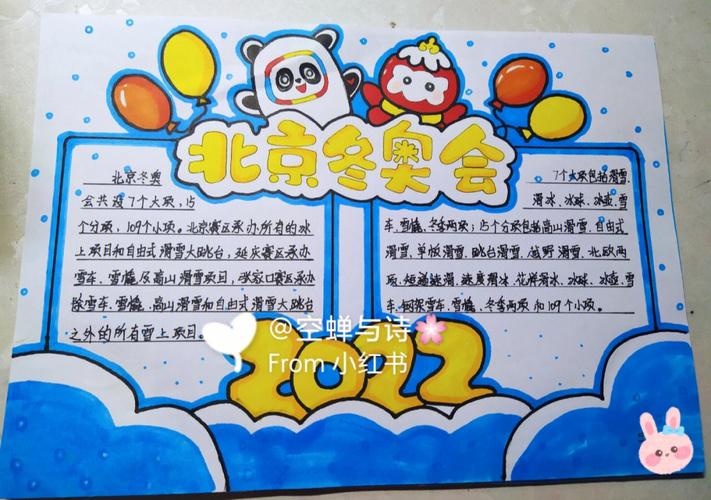 北京冬奥会
北京冬奥
会共设7个大项,15
个分项,109个小项。北京赛区承办所有的冰
上项目和自由式滑雪大跳台,延庆赛区承办
雪车、雪橇及高山滑雪项目,张家口赛区承办
除雪车、雪橇、高山滑雪和自由式滑雪大跳台
之外的所有雪上项目。
7个大项包括滑雪、
滑冰、冰球、冰壶、雪
车、雪橇、冬季两项;15个分项包括高山滑雪、自由式
滑雪、单板滑雪、跳台滑雪、越野滑雪、北欧两
项、短道速滑、速度滑冰、花样滑冰、冰球、冰壶、雪
车、钢架雪车、雪橇、冬季两项和109个小项。
@空蝉与诗
From 小红书
2022